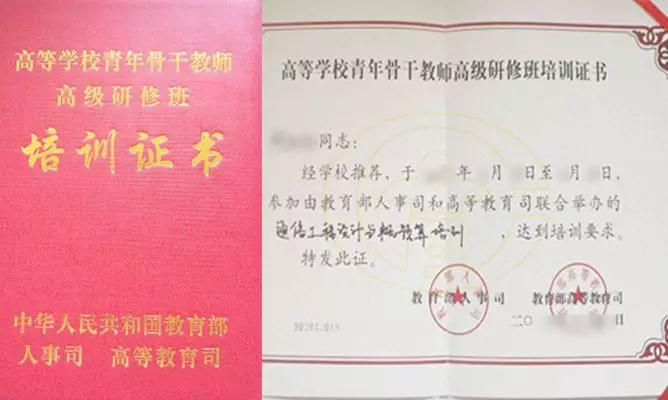 高等学校青年骨干教师
高级研修班
培训证书
中华人民共和国教育部
人事司 高等教育司
高等学校青年骨干教师高级研修班培训证书
同志：
经学校推荐，于 年 月 日至 月 日，
参加由教育部人事司和高等教育司联合举办的
通信工程设计与概预算培训 ，达到培训要求。
特发此证。
教育部人事司 教育部高等教育司
二〇 日